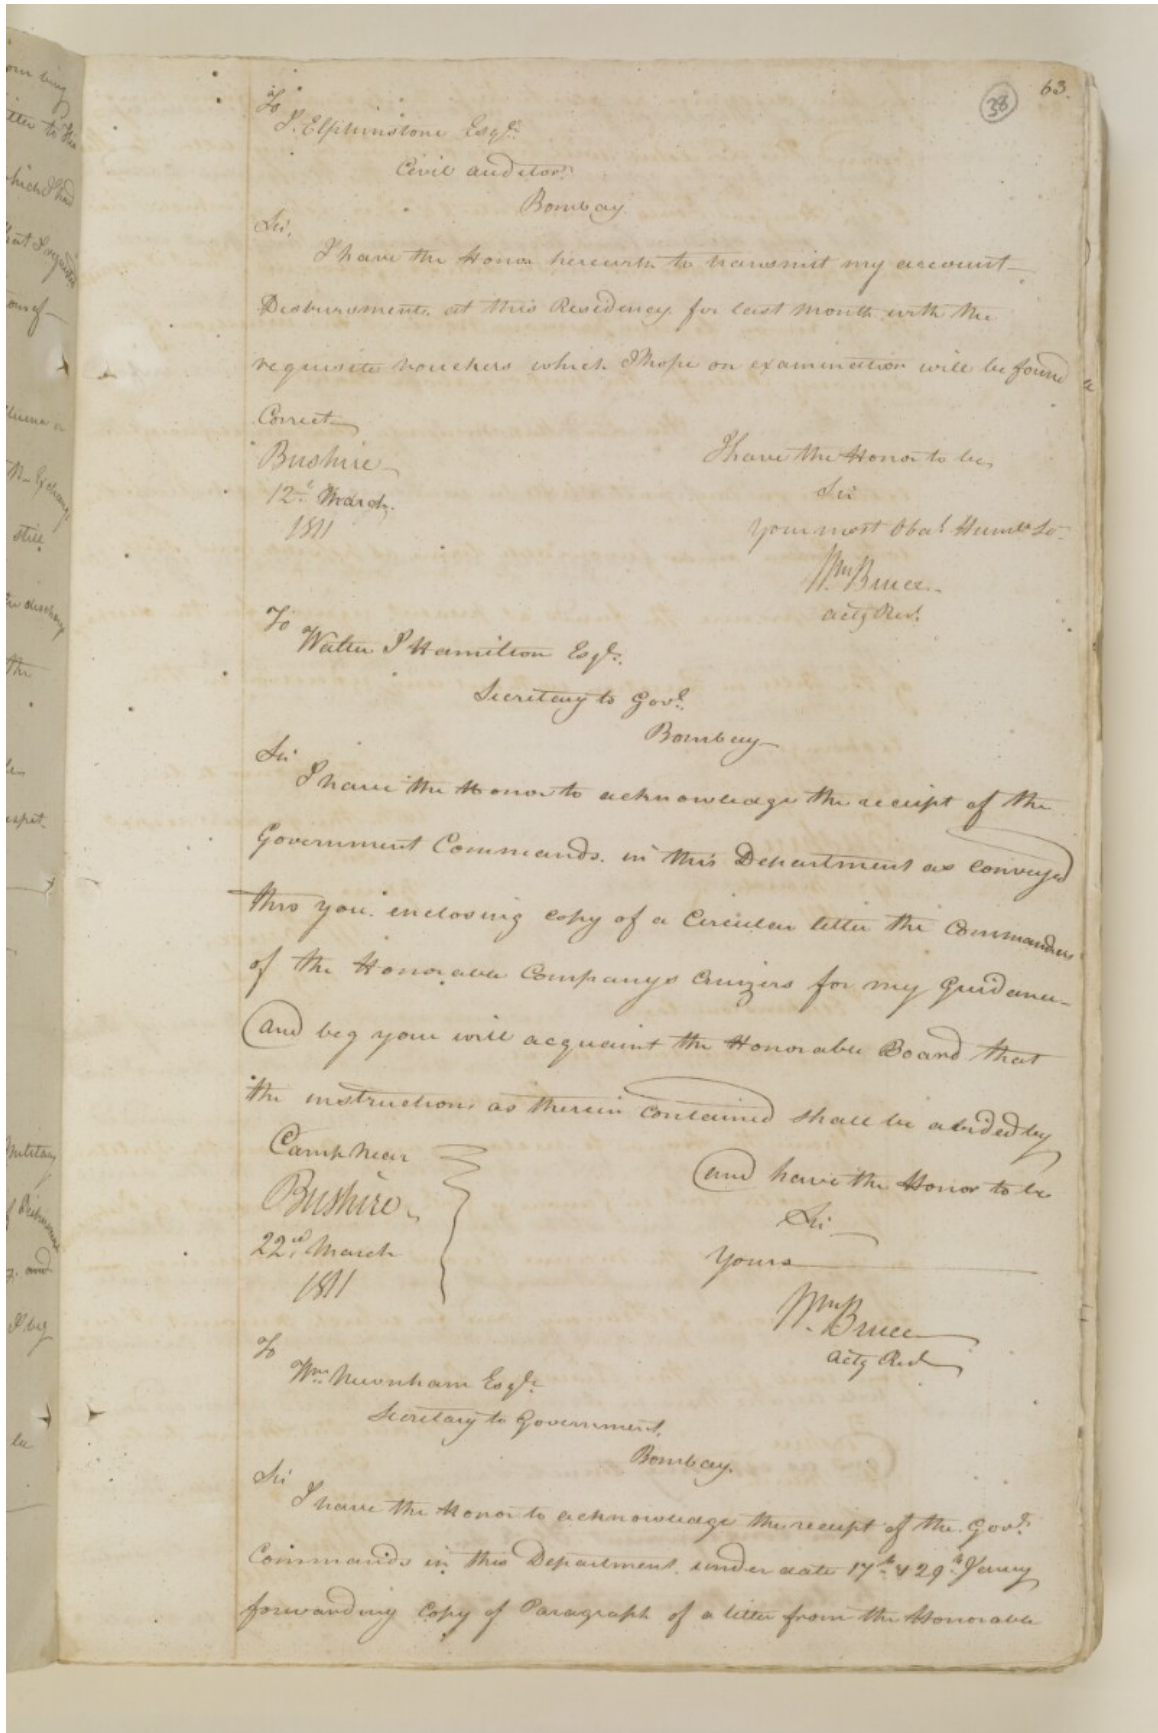 63.
38
To
J. Elphinstone Esqr.
Civil auditor
Bombay
Sir,
I have the Honor herewith to transmit my account
Disbursments at this Residency for last Month with the
requisite vouchers which I hope on examination will be found
Correct
Bushire
12th March
1811
I have the Honor to be
Sir
Your most Obdt. Humble St.
Wm Bruce
actg Rest.
To
Walter J Hamilton Esqr.
Secretary to Govt.
Bombay
Sir
I have the Honor to acknowledge the receipt of the
Government Commands. in this Department as conveyed
thro you. enclosing copy of a Circular letter the Commanders
of the Honorable Companys Cruizers for my Guidance
and beg your will acquaint the Honorable Board that
the instructions as therein contained shall be abided by
Camp Near
Bushire
22nd March
1811
and have the Honor to be
Sir
Yours
Wm Bruce
actg Rest
To
Wm. Newnham Esqr.
Secretary to Government,
Bombay.
Sir
I have the Honor to acknowledge the receipt of the Govt.
Commands in this Department under date 17th & 29th Janry
forwarding Copy of Paragraph of a letter from the Honorable